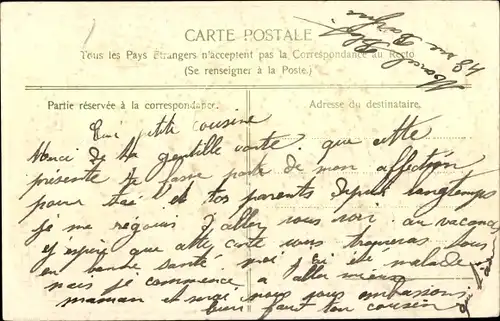 CARTE POSTALE
Tous les Pays étrangers n'acceptent pas la Correspondance au Recto
(Se renseigner à la Poste.)
Partie réservée à la correspondance.
Adresse du destinataire.
petite cousine
Merci de ta gentille carte. que cette
présente te fasse parte de mon affection
pour et tes parents depuis longtemps
je me réjouis d'aller vous voir. au vacances
et espère que cette carte vous trouveras tous
en bonne santé moi été malade
mais je commence a aller mieux
maman et nous vous embrassons
bien fort ton cousin